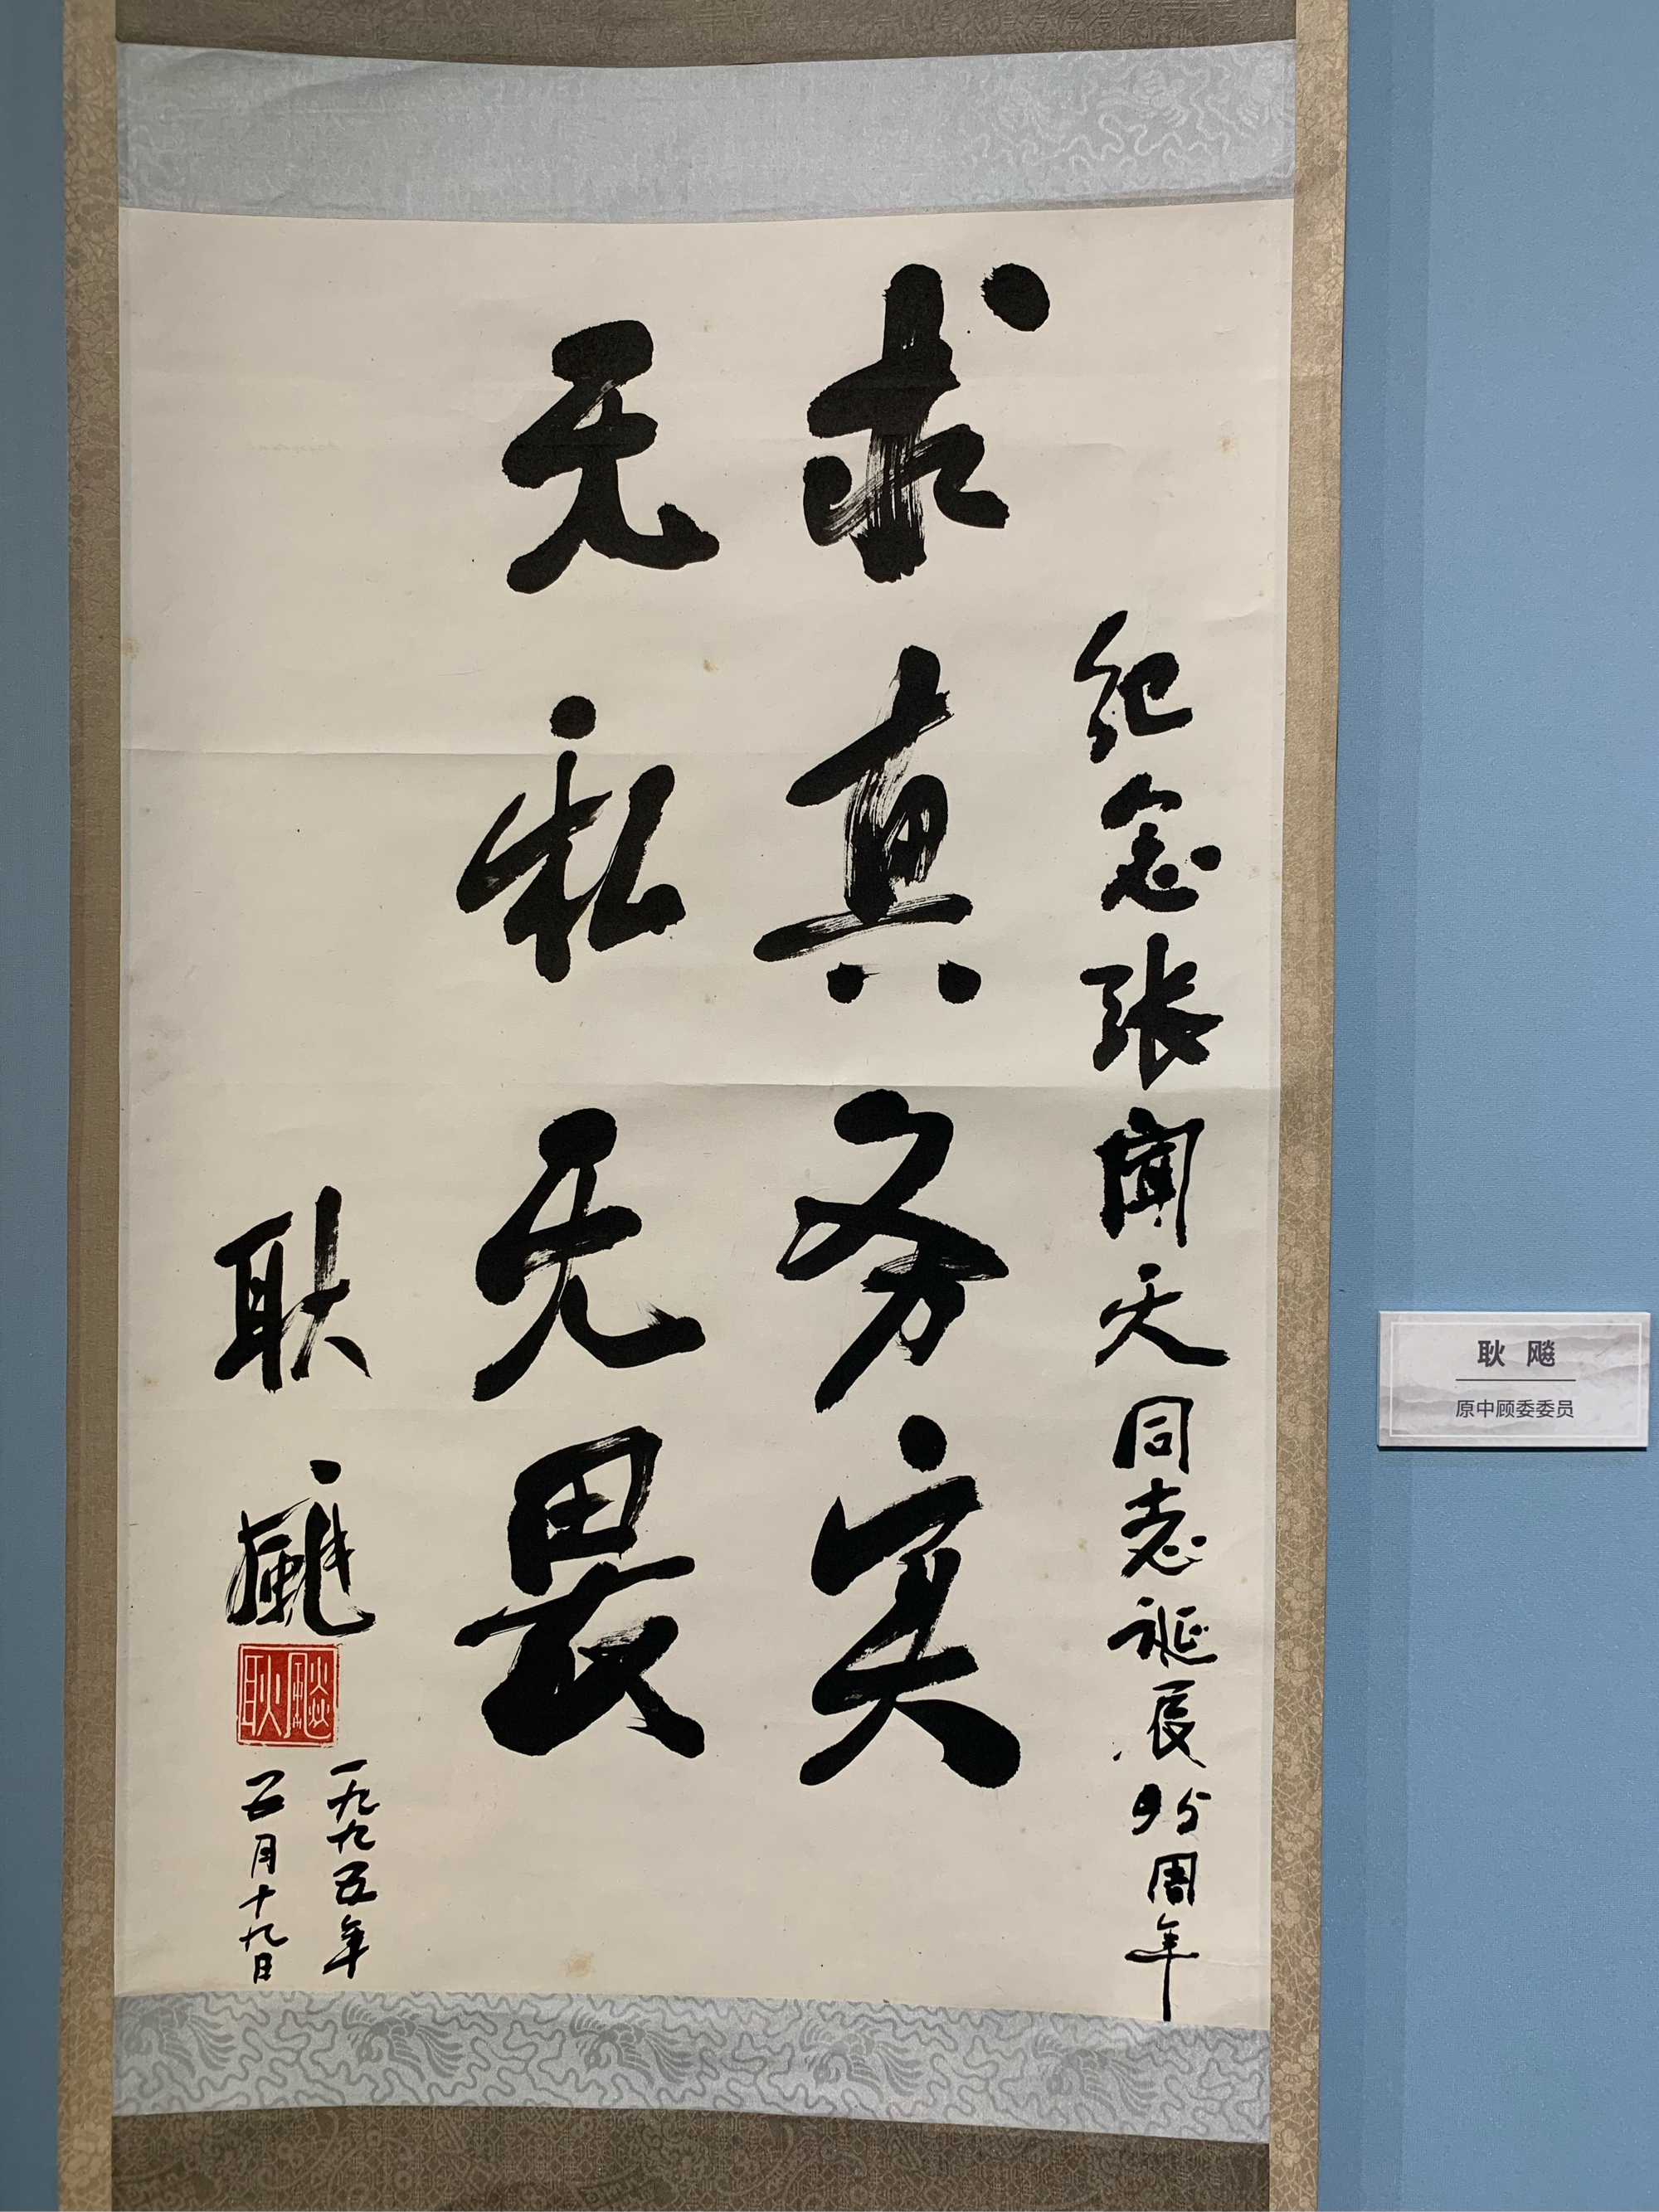 纪念张闻天同志诞辰95周年
求真务实
无私无畏
耿飚
耿飚
一九九五年
五月十九日
耿 飚
原中顾委委员